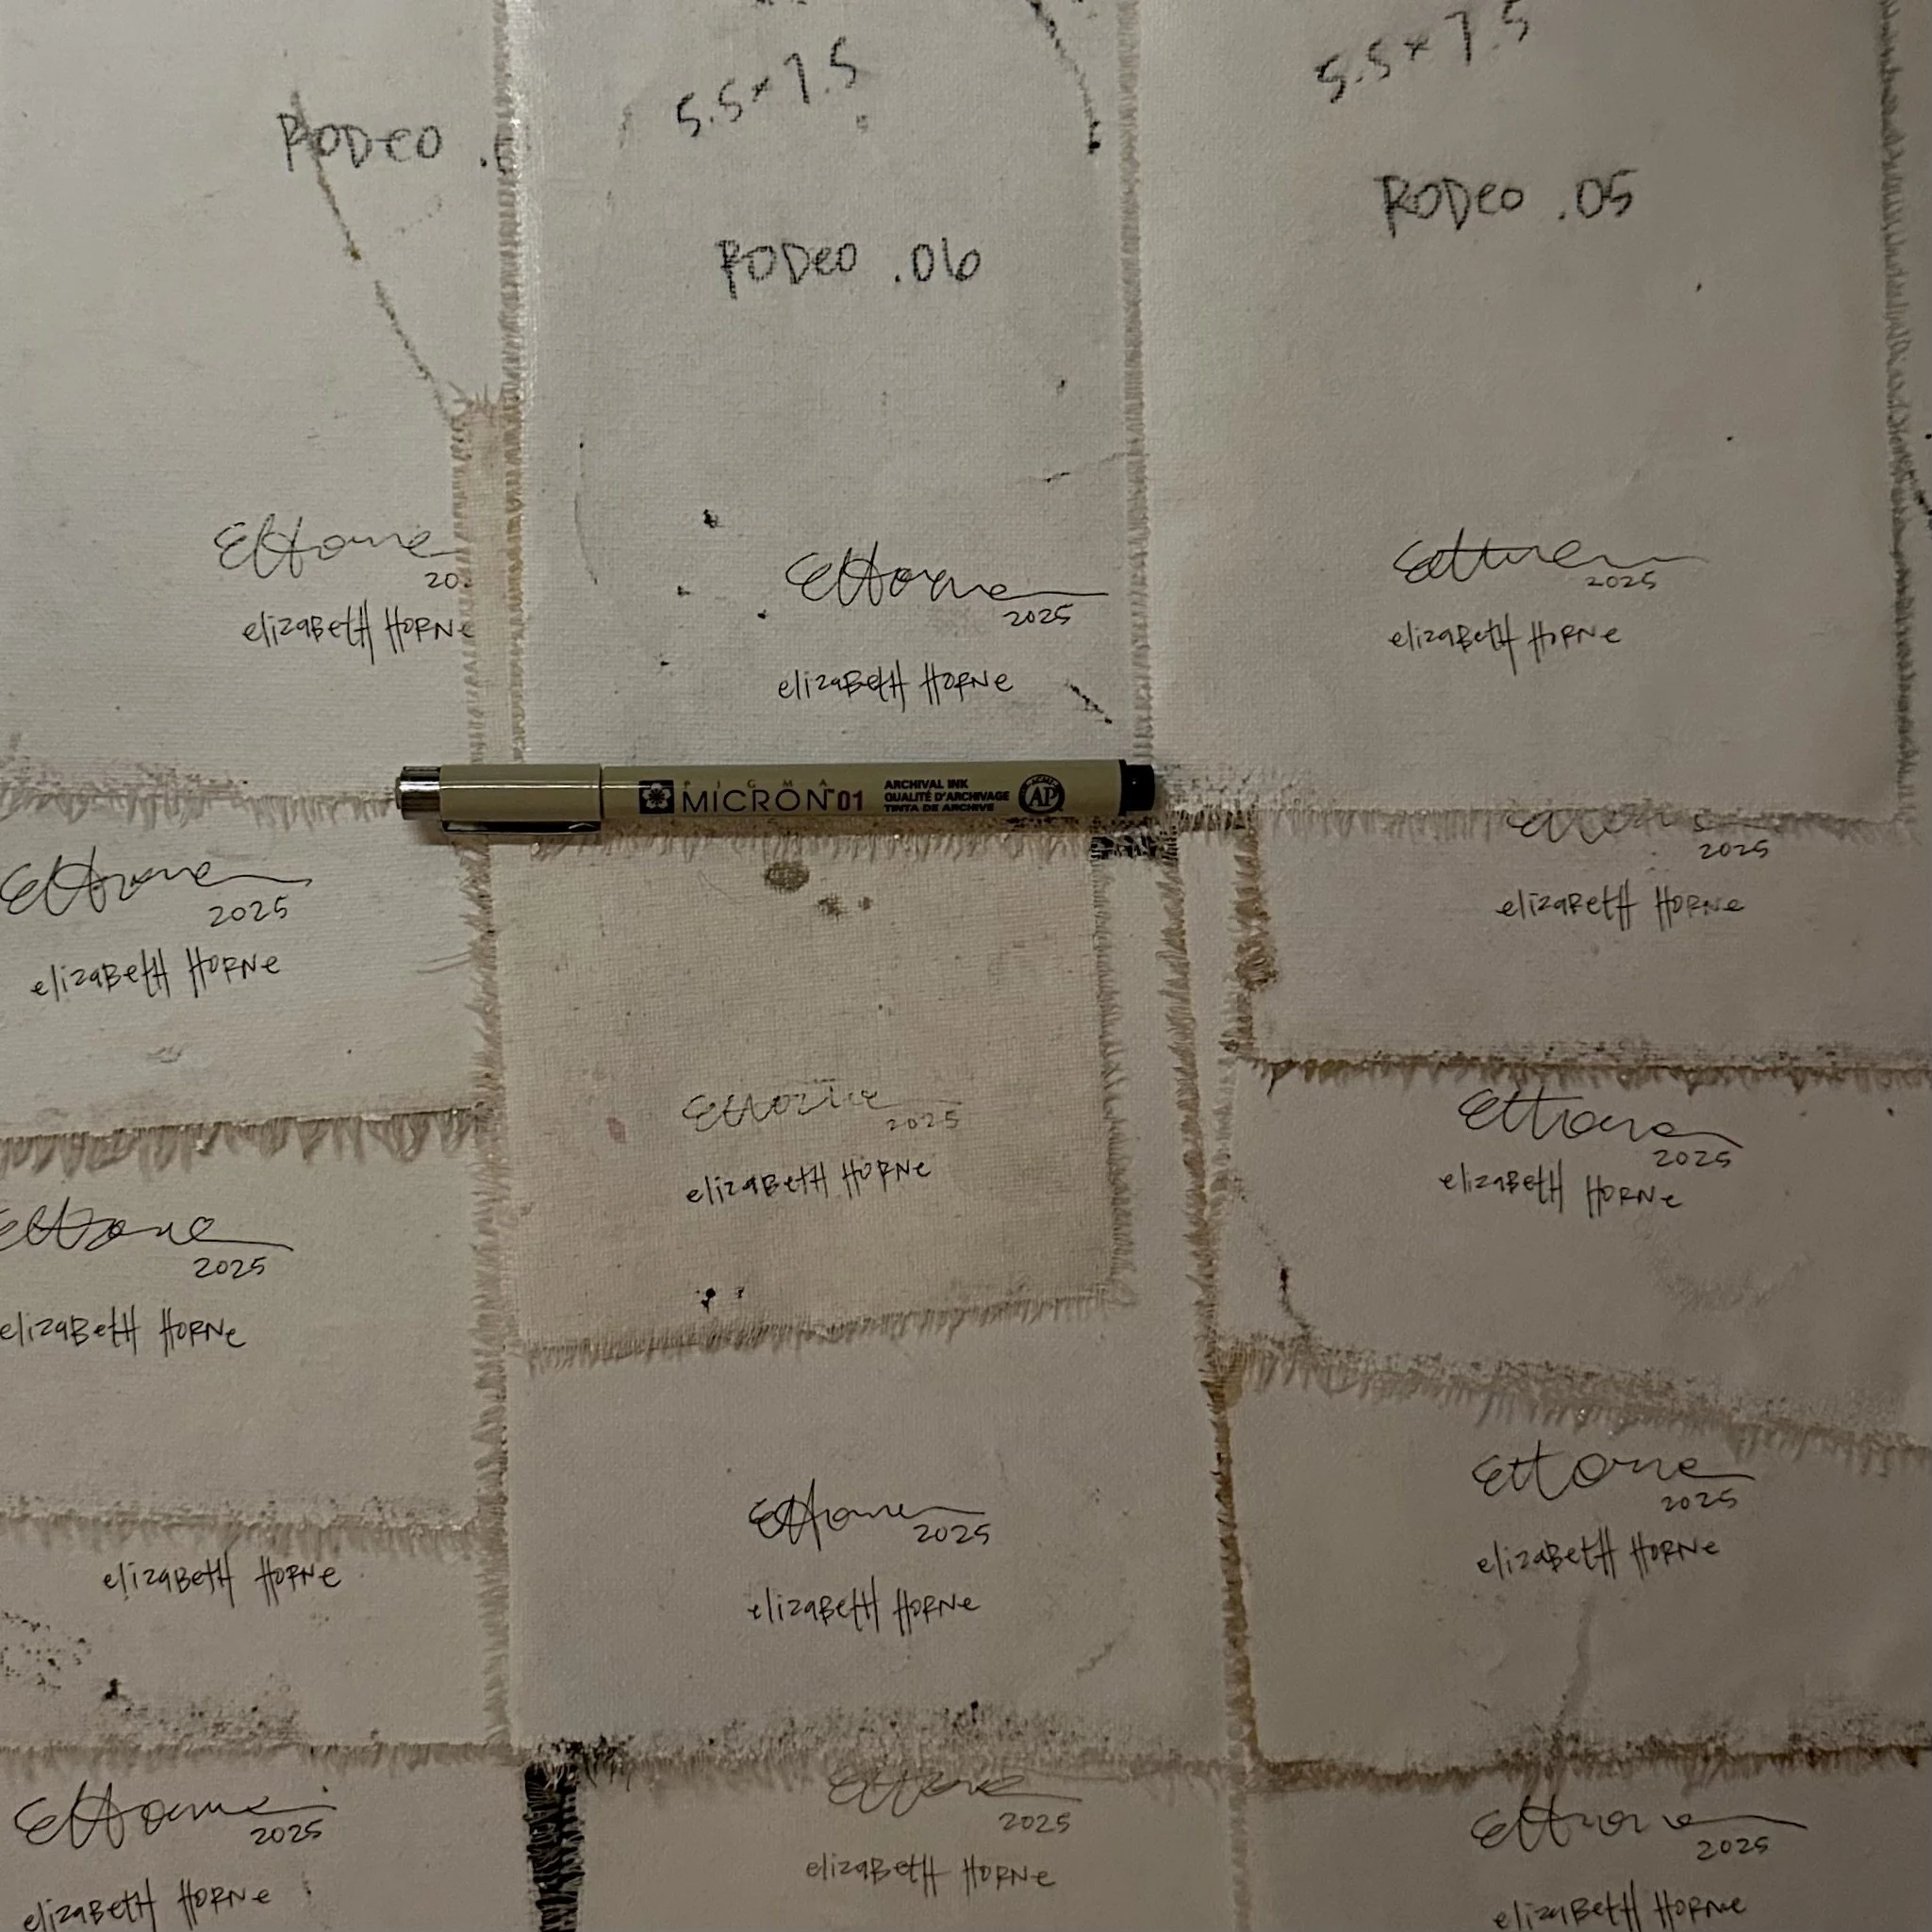 5.5 x 7.5
5.5 x 7.5
RODEO
RODEO .06
RODEO .05
EHorne
20
elizaBetH HORNe
EHorne
2025
elizaBetH HORNe
EHorne
2025
elizaBetH HORNe
PIGMA
MICRON™ 01
ARCHIVAL INK
QUALITÉ D'ARCHIVAGE
TINTA DE ARCHIVE
ACMI
AP
EHorne
2025
elizaBetH HORNe
2025
elizaBetH HORNe
EHorne
2025
elizaBetH HORNe
EHorne
2025
elizaBetH HORNe
EHorne
2025
elizaBetH HORNe
elizaBetH HORNe
EHorne
2025
elizaBetH HORNe
EHorne
2025
elizaBetH HORNe
EHorne
2025
elizaBetH HORNe
EHorne
2025
elizaBetH HORNe
EHorne
2025
elizaBetH HORNe